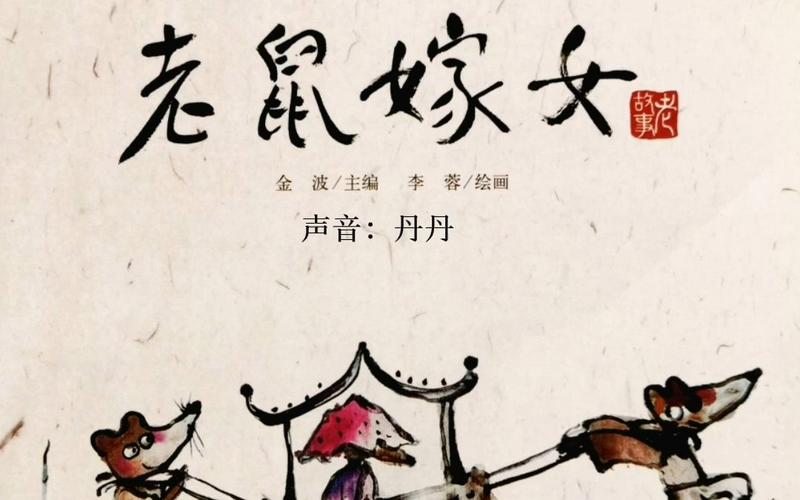 老鼠嫁女
老故事
金 波/主编 李 蓉/绘画
声音：丹丹